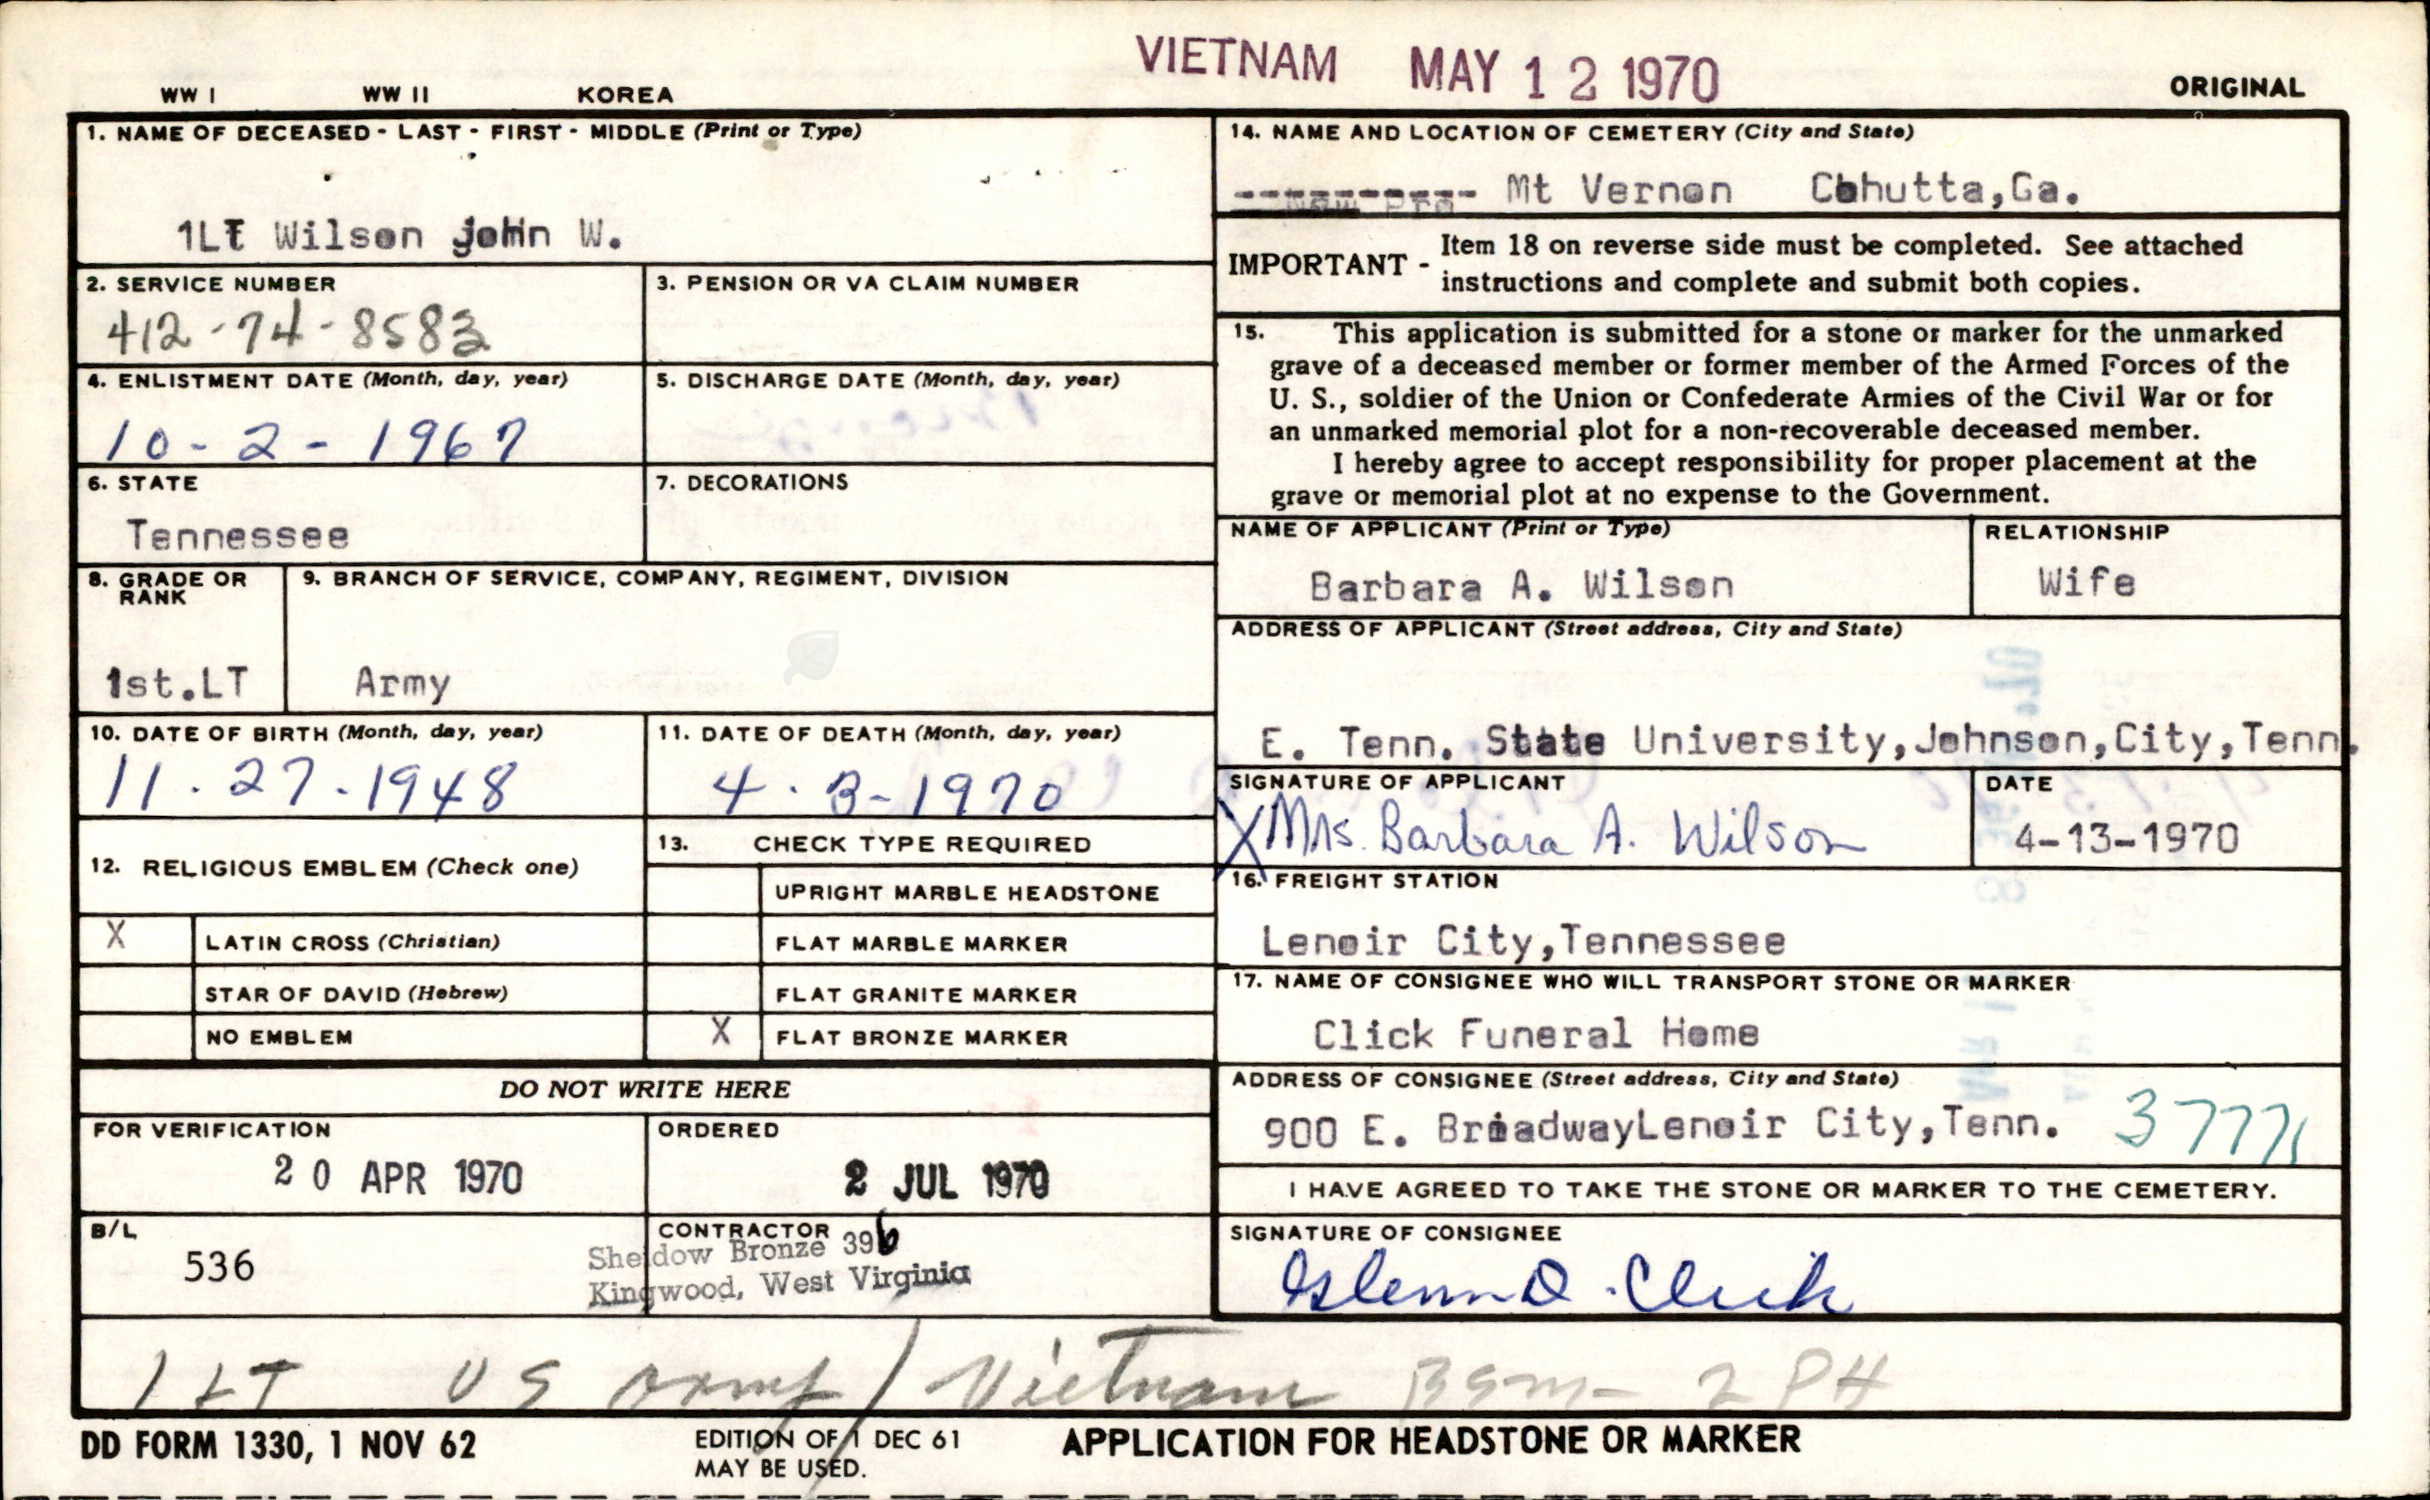 VIETNAM MAY 12 1970
WW I WW II KOREA ORIGINAL
1. NAME OF DECEASED - LAST - FIRST - MIDDLE (Print or Type)
1LT Wilson john W.
2. SERVICE NUMBER
412-74-8583
3. PENSION OR VA CLAIM NUMBER
4. ENLISTMENT DATE (Month, day, year)
10-2-1967
5. DISCHARGE DATE (Month, day, year)
6. STATE
Tennessee
7. DECORATIONS
8. GRADE OR
RANK
1st.LT
9. BRANCH OF SERVICE, COMPANY, REGIMENT, DIVISION
Army
10. DATE OF BIRTH (Month, day, year)
11.27.1948
11. DATE OF DEATH (Month, day, year)
4.3-1970
12. RELIGIOUS EMBLEM (Check one)
X LATIN CROSS (Christian)
STAR OF DAVID (Hebrew)
NO EMBLEM
13. CHECK TYPE REQUIRED
UPRIGHT MARBLE HEADSTONE
FLAT MARBLE MARKER
FLAT GRANITE MARKER
X FLAT BRONZE MARKER
DO NOT WRITE HERE
FOR VERIFICATION
20 APR 1970
ORDERED
2 JUL 1970
B/L
536
CONTRACTOR
Sheidow Bronze 396
Kingwood, West Virginia
14. NAME AND LOCATION OF CEMETERY (City and State)
Mt Vernon Cohutta,Ga.
IMPORTANT - Item 18 on reverse side must be completed. See attached
instructions and complete and submit both copies.
15. This application is submitted for a stone or marker for the unmarked
grave of a deceased member or former member of the Armed Forces of the
U. S., soldier of the Union or Confederate Armies of the Civil War or for
an unmarked memorial plot for a non-recoverable deceased member.
I hereby agree to accept responsibility for proper placement at the
grave or memorial plot at no expense to the Government.
NAME OF APPLICANT (Print or Type)
Barbara A. Wilson
RELATIONSHIP
Wife
ADDRESS OF APPLICANT (Street address, City and State)
E. Tenn. State University,Johnson,City,Tenn.
SIGNATURE OF APPLICANT
X Mrs. Barbara A. Wilson
DATE
4-13-1970
16. FREIGHT STATION
Lenoir City,Tennessee
17. NAME OF CONSIGNEE WHO WILL TRANSPORT STONE OR MARKER
Click Funeral Home
ADDRESS OF CONSIGNEE (Street address, City and State)
900 E. BroadwayLenoir City,Tenn. 37771
I HAVE AGREED TO TAKE THE STONE OR MARKER TO THE CEMETERY.
SIGNATURE OF CONSIGNEE
Glenn D. Click
1 LT US Army / Vietnam BSM- 2 PH
DD FORM 1330, 1 NOV 62
EDITION OF 1 DEC 61
MAY BE USED.
APPLICATION FOR HEADSTONE OR MARKER